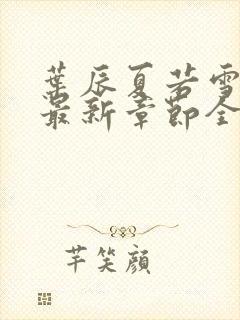 葉辰夏若雪
最新章節全
芊笑顔